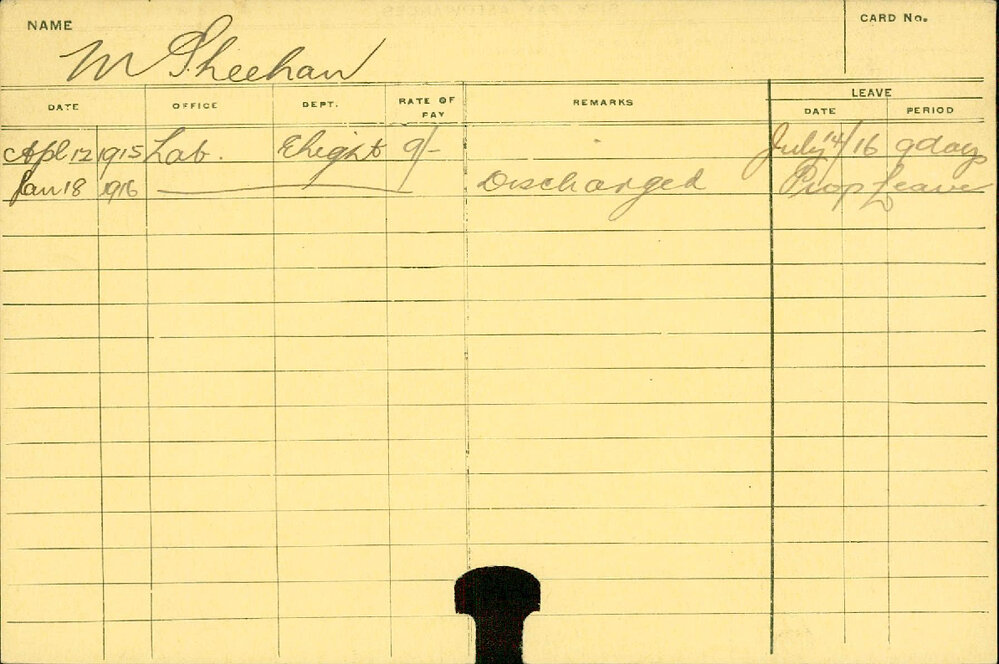 NAME
CARD No.
M Sheehan
DATE OFFICE DEPT. RATE OF PAY REMARKS LEAVE
DATE PERIOD
Apl 12 1915 Lab. Elight 9/- July 14/16 9 days
Jan 18 1916 Discharged Prop Leave